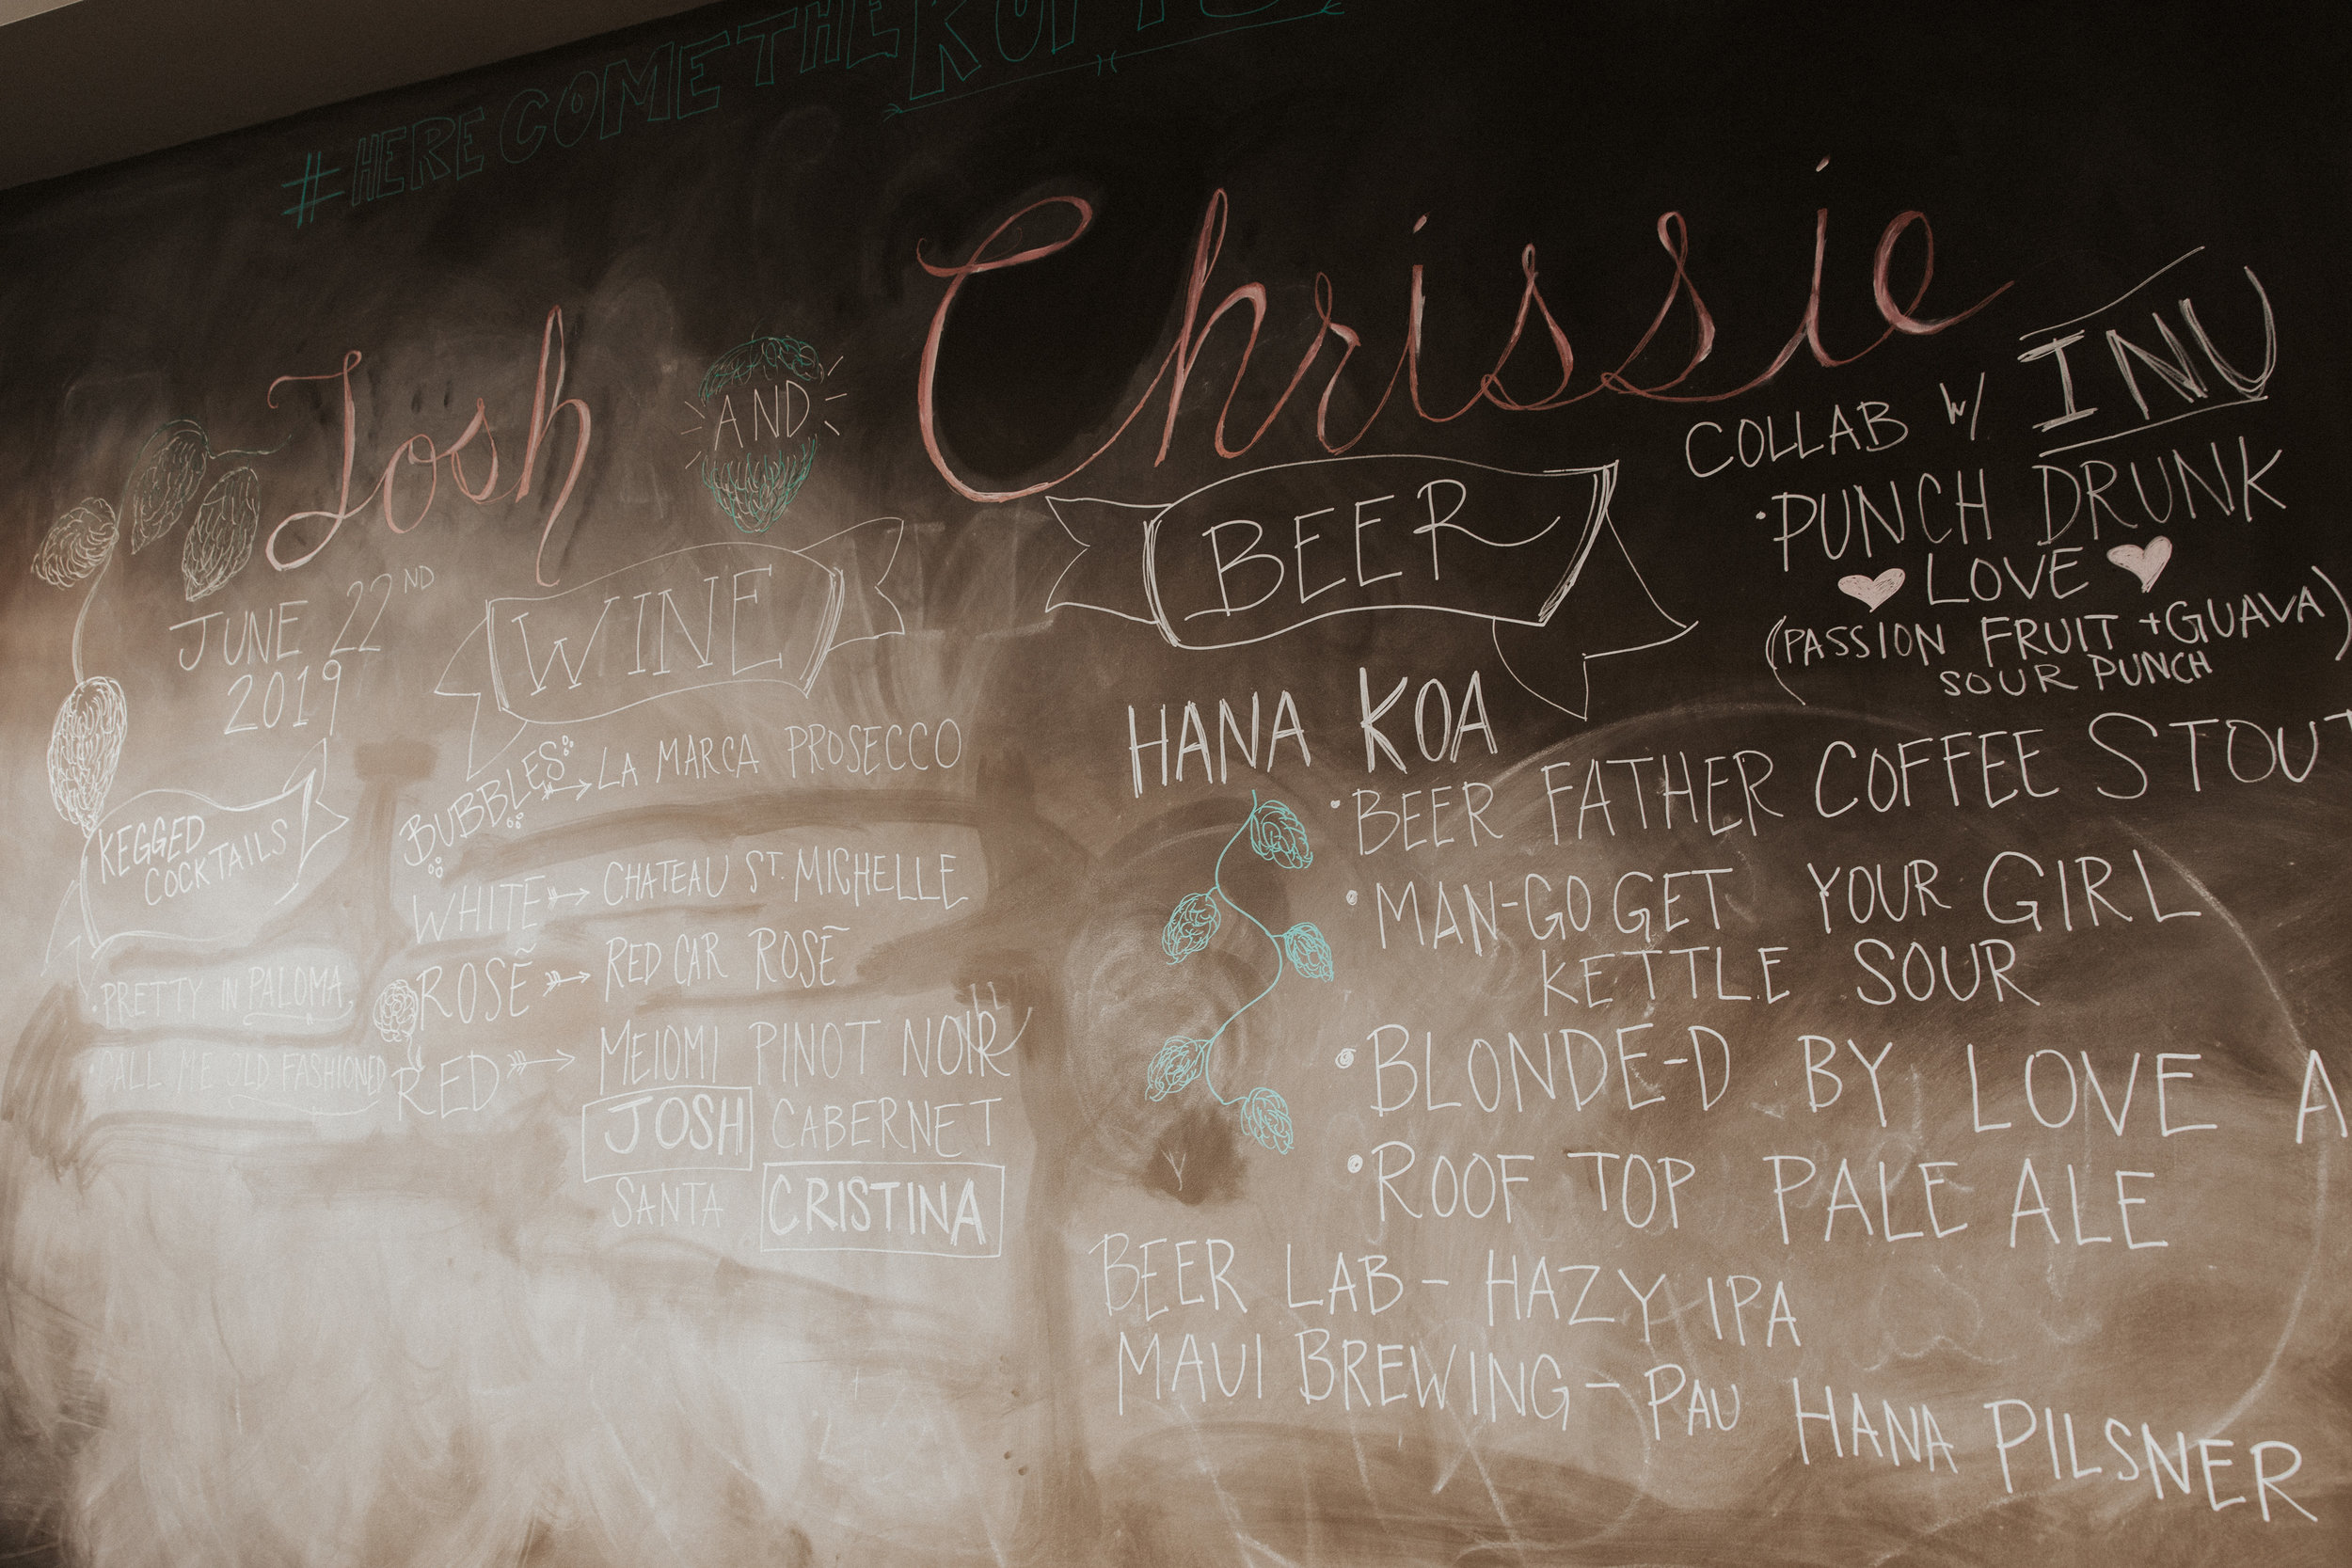 #HERE COME THE
Josh AND Chrissie
JUNE 22ND
2019
KEGGED
COCKTAILS
• PRETTY IN PALOMA
• CALL ME OLD FASHIONED
WINE
BUBBLES → LA MARCA PROSECCO
WHITE → CHATEAU ST. MICHELLE
ROSĒ → RED CAR ROSĒ
RED → MEIOMI PINOT NOIR
JOSH CABERNET
SANTA CRISTINA
BEER
HANA KOA
• BEER FATHER COFFEE STOUT
• MAN-GO GET YOUR GIRL
KETTLE SOUR
• BLONDE-D BY LOVE A
• ROOF TOP PALE ALE
BEER LAB - HAZY IPA
MAUI BREWING - PAU HANA PILSNER
COLLAB W/ INU
• PUNCH DRUNK
♥ LOVE ♥
(PASSION FRUIT + GUAVA)
SOUR PUNCH